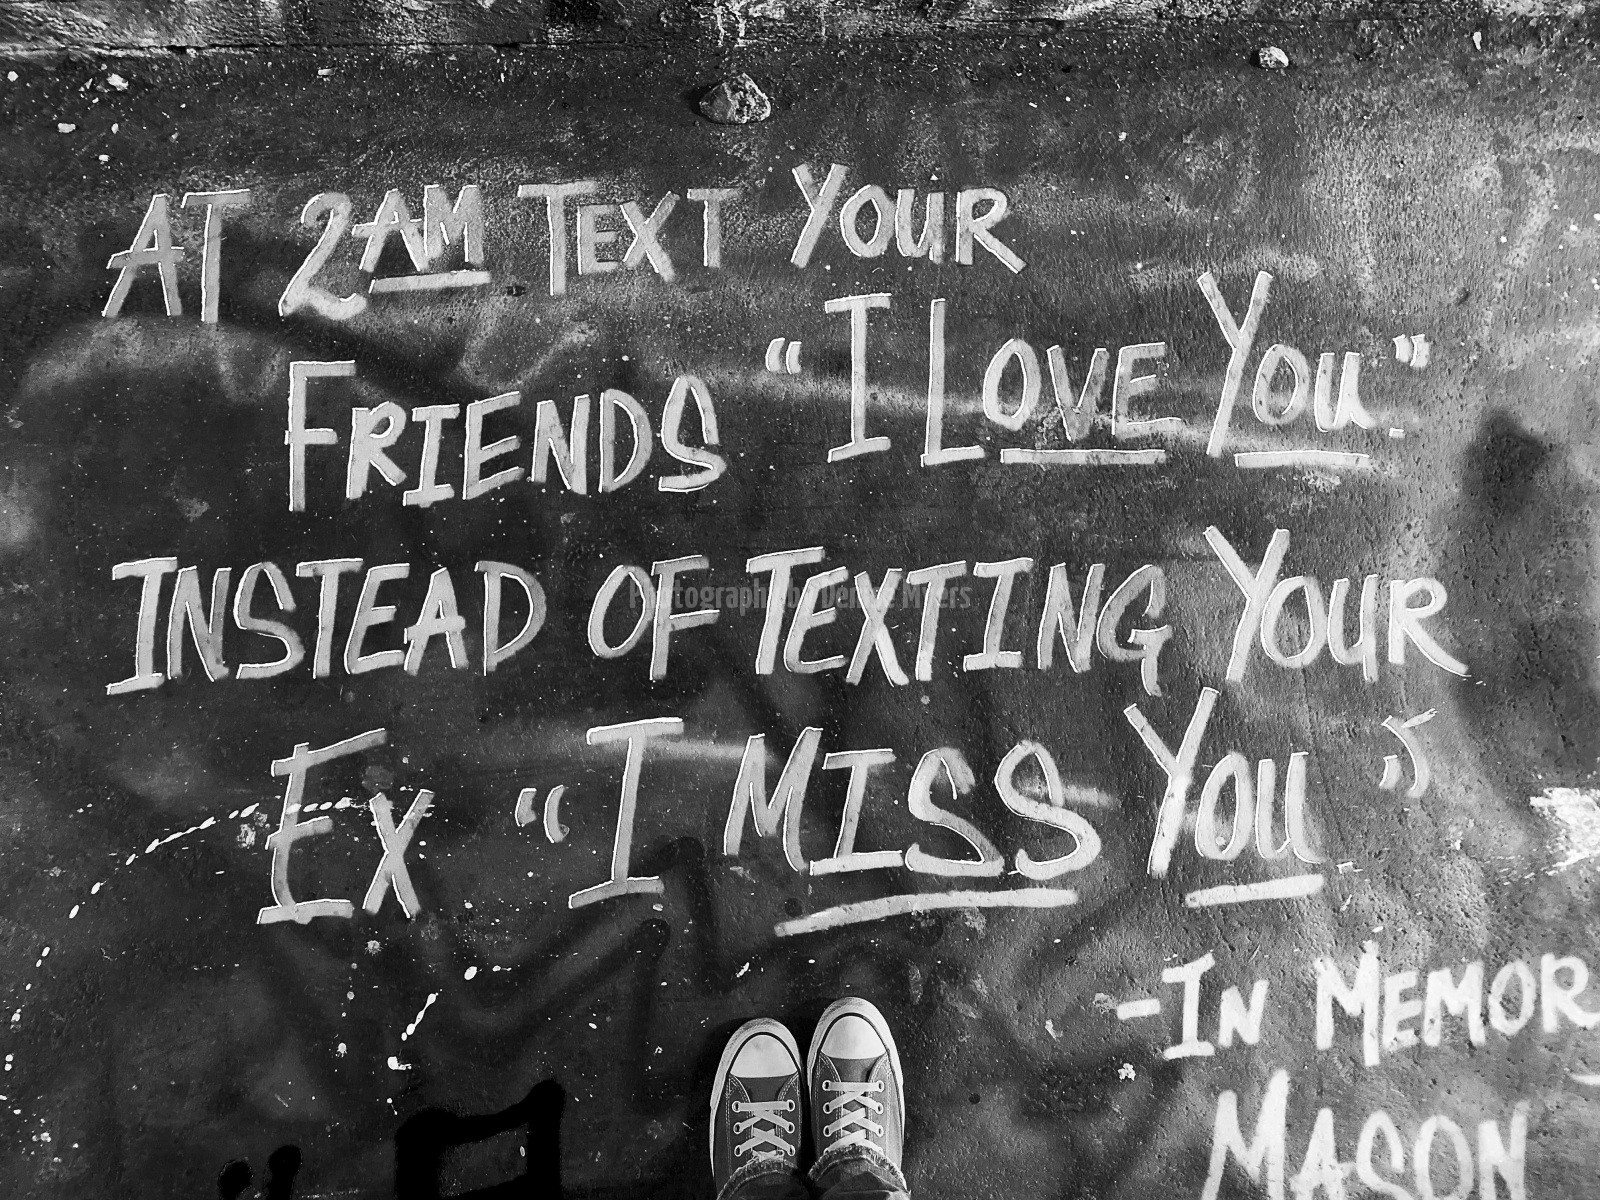 AT 2AM TEXT YOUR
FRIENDS "I LOVE YOU."
INSTEAD OF TEXTING YOUR
EX "I MISS YOU."
-IN MEMOR
MASON
Photograph by Denise Myers